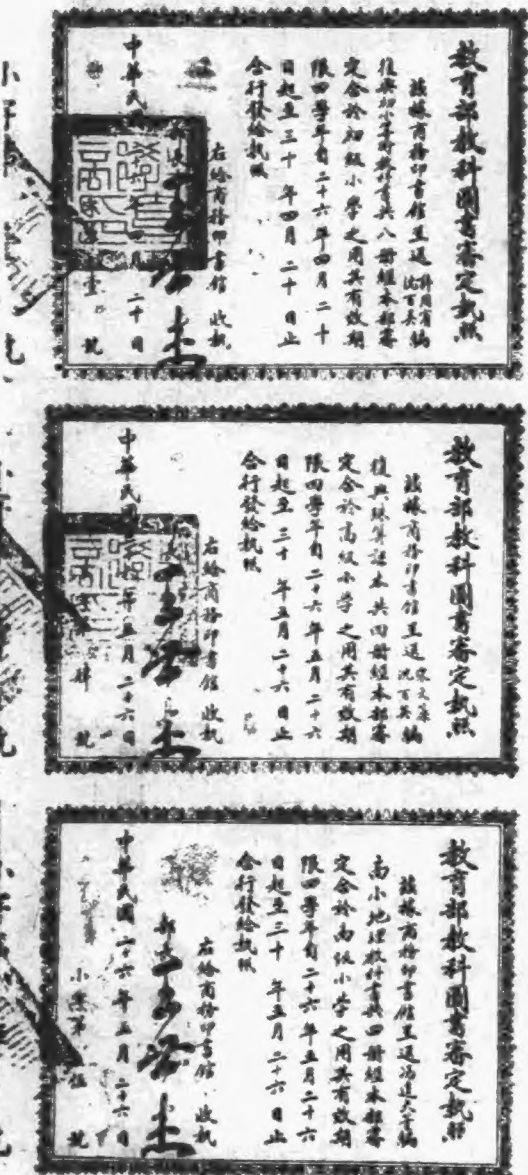 教育部教科圖書審定執照
茲據商務印書館呈送 沈百英 編
復興初小算術教科書共八册經本部審
定合於初級小學之用其有效期
限四學年自二十六年四月二十
日起至三十年四月二十日止
合行發給執照
右給商務印書館 收執
部長王世杰
中華民國二十六年四月二十日
號
教育部教科圖書審定執照
茲據商務印書館呈送 宋文藻 沈百英 編
復興珠算課本共四册經本部審
定合於高級小學之用其有效期
限四學年自二十六年五月二十六
日起至三十年五月二十六日止
合行發給執照
右給商務印書館 收執
王世杰
中華民國 年五月二十六日
肆 號
教育部教科圖書審定執照
茲據商務印書館呈送馮達夫編
高小地理教科書共四册經本部審
定合於高級小學之用其有效期
限四學年自二十六年五月二十六
日起至三十年五月二十六日止
合行發給執照
右給商務印書館 收執
部長王世杰
中華民國二十六年五月二十六日
小 字第 伍 號